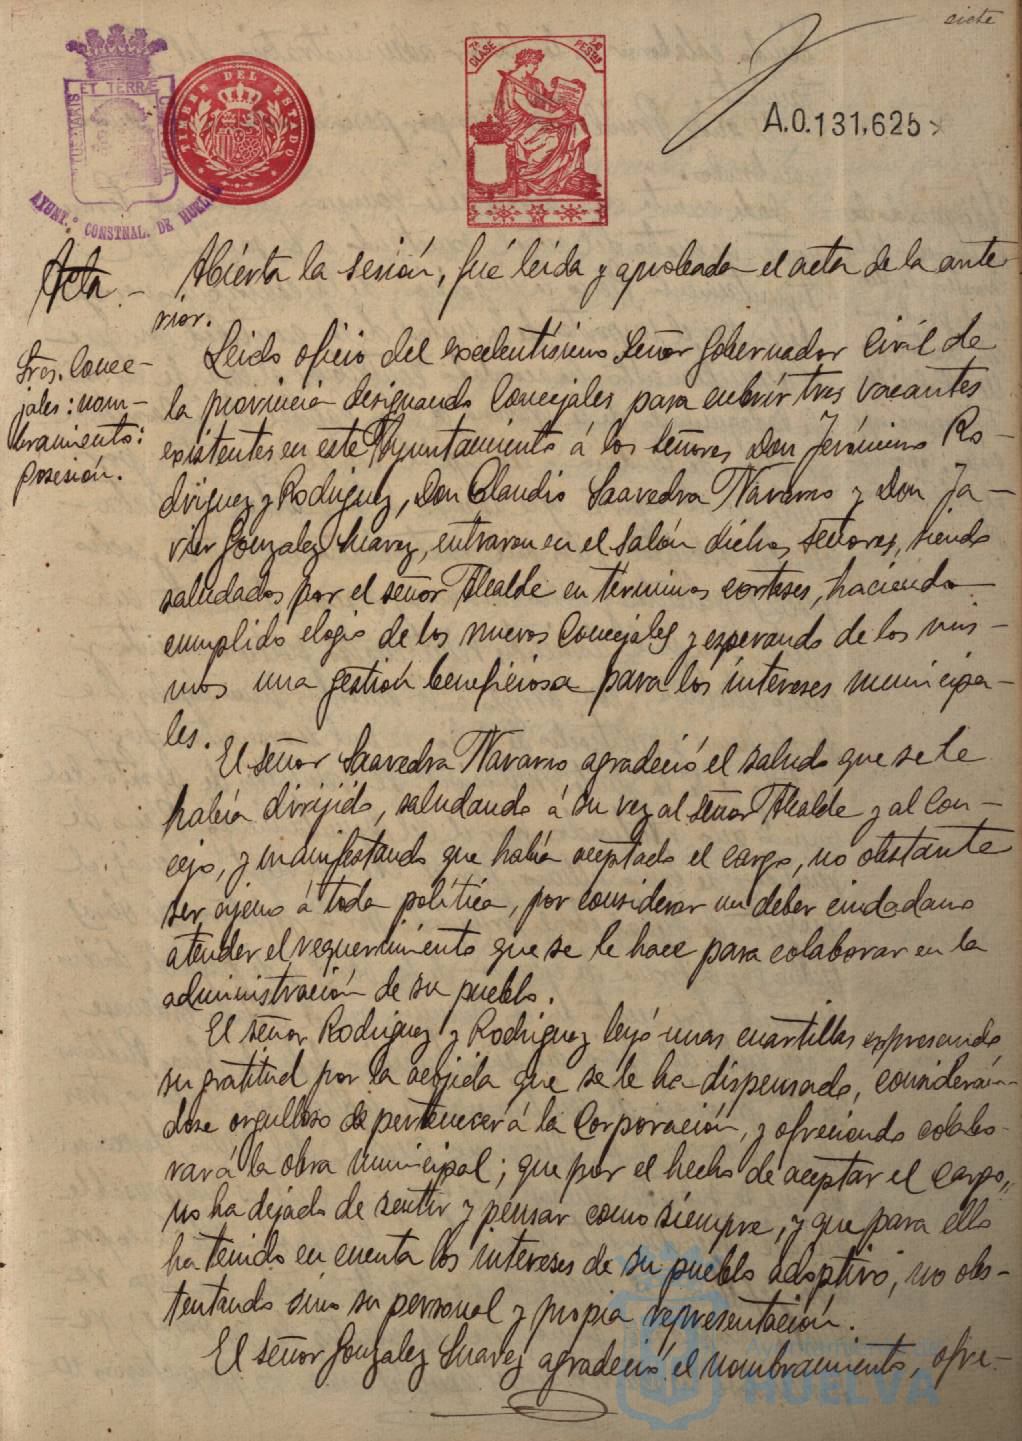 siete
ET TERRÆ
AYUNT.º CONSTNAL. DE HUELVA
TIMBRE DEL ESTADO
7ª CLASE
PESTAS
A.0.131,625
Acta.-
Abierta la sesión, fué leida y aprobada el acta de la ante-
rior.
Sres. Conce-
jales: nom-
bramiento:
posesión.
Leido oficio del excelentísimo Señor Gobernador Civil de
la provincia designando Concejales para cubrír tres vacantes
existentes en este Ayuntamiento á los señores Don Jerónimo Ro-
dríguez y Rodriguez, Don Claudio Saavedra Navarro y Don Ja-
vier Gonzalez Suarez, entraron en el salón dichos señores, siendo
saludados por el señor Alcalde en términos corteses, haciendo
cumplido elogio de los nuevos Concejales y esperando de los mis-
mos una gestión beneficiosa para los intereses municipa-
les.
El señor Saavedra Navarro agradeció el saludo que se le
había dirijido, saludando á su vez al señor Alcalde y al Con-
cejo, y manifestando que había aceptado el cargo, no obstante
ser ajeno á toda política, por considerar un deber ciudadano
atender el requerimiento que se le hace para colaborar en la
administración de su pueblo.
El señor Rodriguez y Rodriguez leyó unas cuartillas expresando
su gratitud por la acojida que se le ha dispensado, considerán-
dose orgulloso de pertenecer á la Corporación, y ofreciendo colabo-
rar á la obra municipal; que por el hecho de aceptar el cargo,
no ha dejado de sentir y pensar como siempre, y que para ello
ha tenido en cuenta los intereses de su pueblo adoptivo, no obs-
tentando sino su personal y propia representación.
El señor Gonzalez Suarez agradeció el nombramiento, ofre-
HUELVA